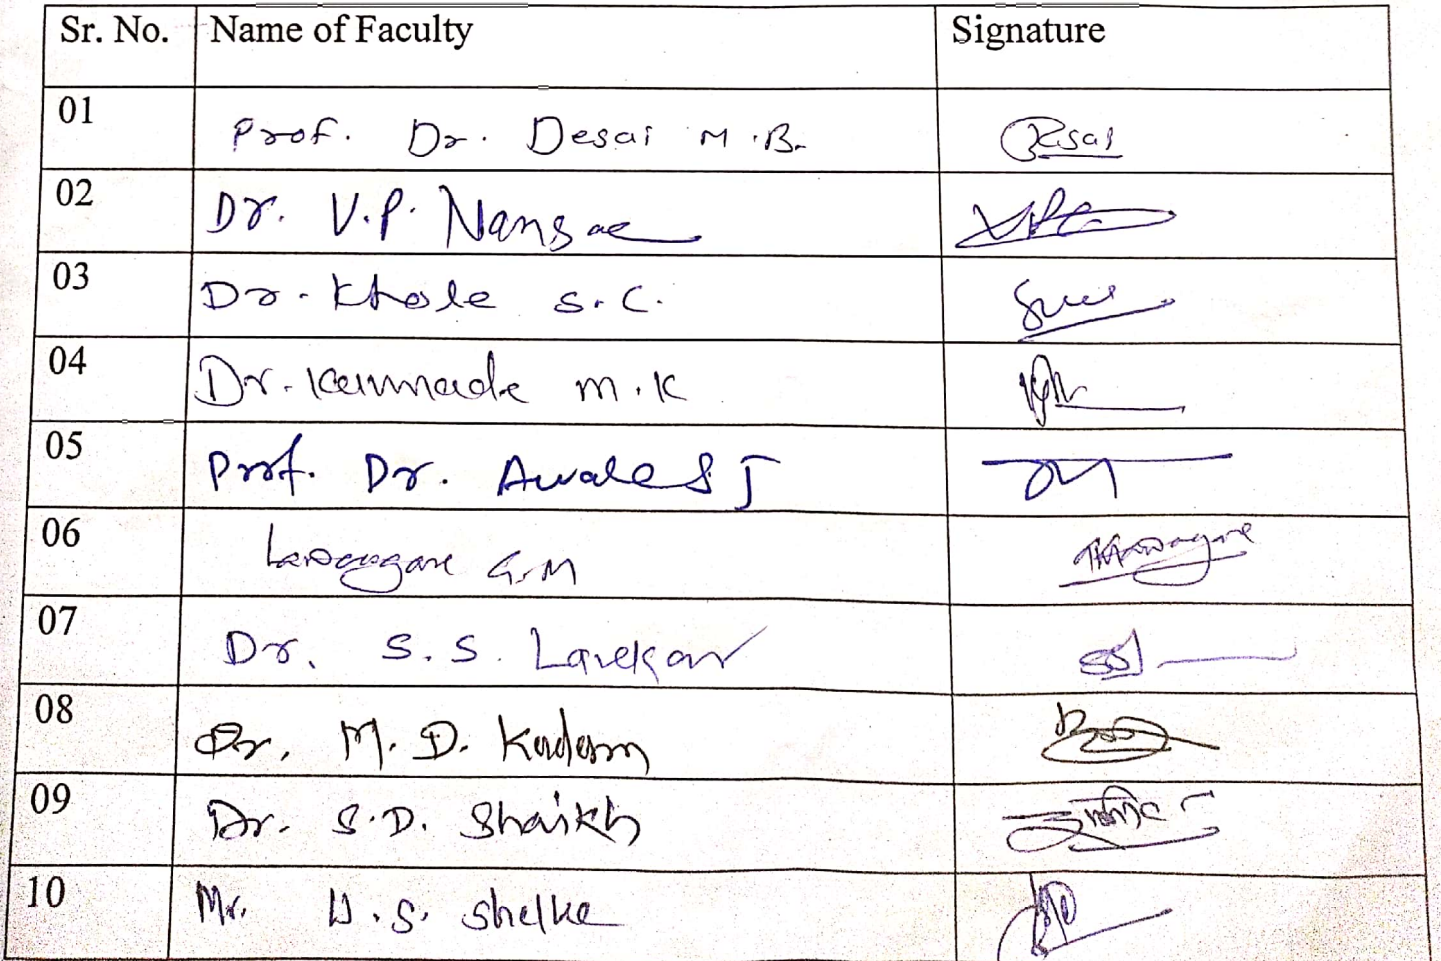 Sr. No. Name of Faculty Signature
01 Prof. Dr. Desai M.B. Desai
02 Dr. V.P. Nansae
03 Dr. Khole S.C.
04 Dr. Kammade M.K
05 Prof. Dr. Awale S J
06 Lawangare G.M
07 Dr. S.S. Lavekar
08 Dr. M.D. Kadam
09 Dr. S.D. Shaikh
10 Mr. S. Shelke